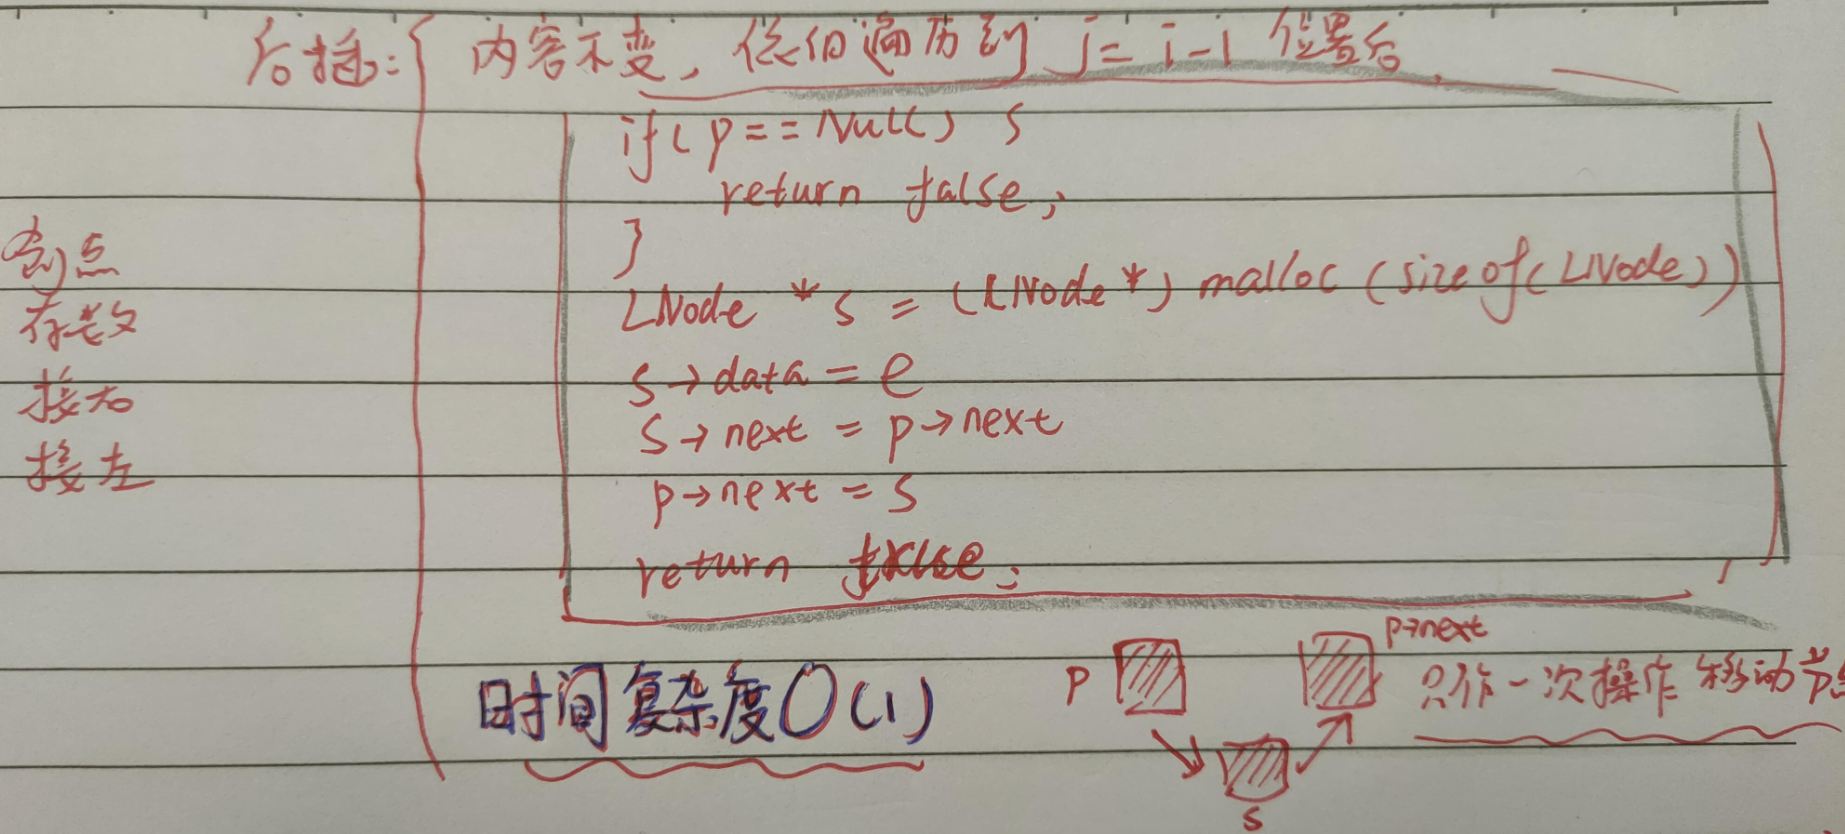 后插：{ 内容不变，依旧遍历到 j = i-1 位置后
if( p == NULL ) {
return false;
}
LNode * s = (LNode *) malloc (sizeof( LNode ))
s→data = e
s→next = p→next
p→next = s
return
创点
存数
接右
接左
时间复杂度O(1)
p
p→next
s
只作一次操作 移动节点